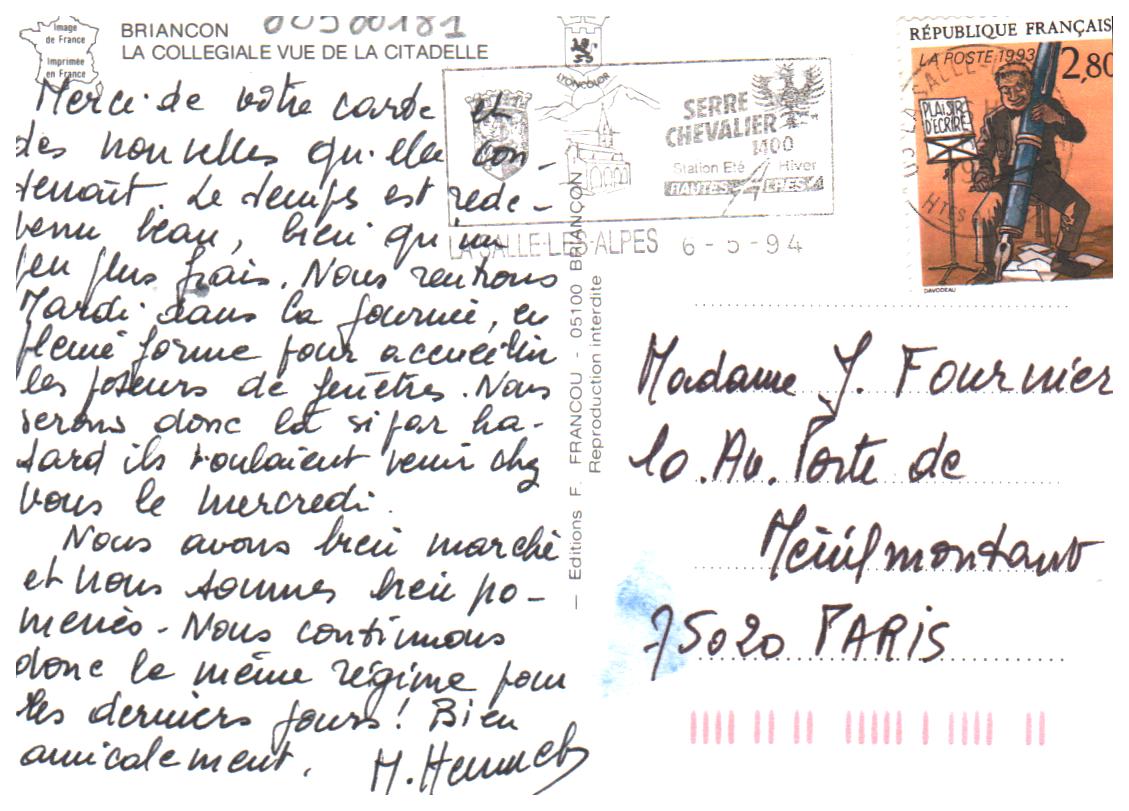 Image
de France
Imprimée
en France
BRIANCON
LA COLLEGIALE VUE DE LA CITADELLE
00500181
Merci de votre carte et
des nouvelles qu'elle con-
tenait. Le temps est rede-
venu beau, bien qu'un
peu plus frais. Nous rentrons
Mardi dans la journée, en
pleine forme pour accueillir
les poseurs de fenêtres. Nous
serons donc là si par ha-
sard ils voulaient venir chez
vous le mercredi.
Nous avons bien marché
et nous sommes bien po-
menés. Nous continuons
donc le même régime pour
les derniers jours! Bien
amicalement.
LYONCOLOR
SERRE
CHEVALIER
1400
Station Eté Hiver
HAUTES ALPES
LA SALLE-LES-ALPES 6-5-94
Editions F. FRANCOU - 05100 BRIANÇON
Reproduction interdite
RÉPUBLIQUE FRANÇAIS
LA POSTE 1993
2,80
PLAISIR
D'ÉCRIRE
DAVODEAU
Madame J. Fournier
10. Av. Porte de
Ménilmontant
75020 PARIS